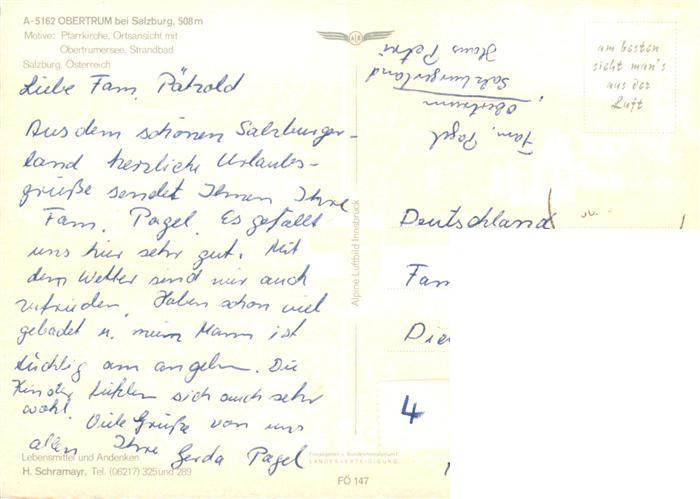 A-5162 OBERTRUM bei Salzburg, 508m
Motive: Pfarrkirche, Ortsansicht mit
Obertrumersee, Strandbad
Salzburg, Österreich
Liebe Fam. Pätzold
Aus dem schönen Salzburger-
land herzliche Urlaubs-
grüße sendet Ihnen Ihre
Fam. Pagel. Es gefällt
uns hier sehr gut. Mit
dem Wetter sind wir auch
zufrieden. Haben schon viel
gebadet u. mein Mann ist
tüchtig am angeln. Die
Kinder fühlen sich auch sehr
wohl. Viele Grüße von uns
allen Ihre Gerda Pagel
Lebensmittel und Andenken
H. Schramayr, Tel. (06217) 325 und 289
Alpine Luftbild Innsbruck
Freigegeben v. Bundesministerium f.
LANDESVERTEIDIGUNG
FÖ 147
Fam. Pagel
Obertrum
Salzburgerland
Haus Petri
am besten
sieht man's
aus der
Luft
Deutschland
Fam
Die
4